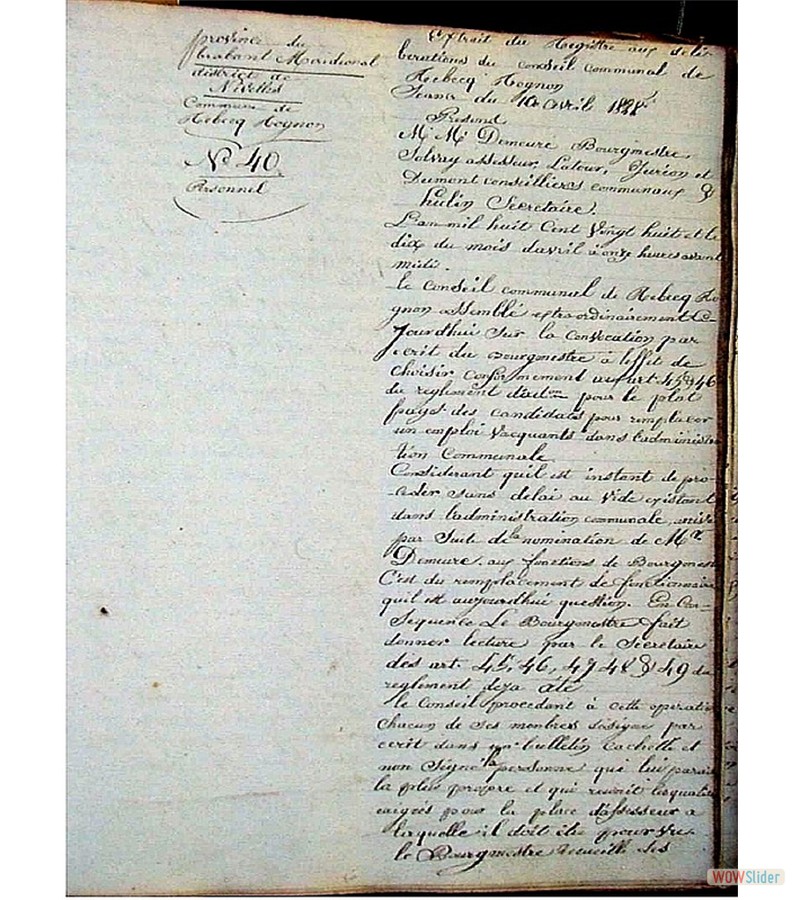 province du
brabant Meridional
district de
Nivelles
Commune de
Rebecq Rognon
No 40.
Personnel
Extrait du Registre aux deli-
berations du conseil communal de
Rebecq Rognon
Seance du 10 avril 1828
Present
M.M. Demeure Bourgmestre,
Solvay assesseur, Latour, Jurion et
Dumont conseilliers communaux &
hulin Secretaire.
L'an mil huit Cent Vingt huit et le
dix du mois davril à onze heures avant
midi.
le Conseil communal de Rebecq Ro
gnon assemblé extraordinairement Ce
Jourdhui Sur la Convocation par
ecrit du Bourgmestre à leffet de
choisir Conformement aux art. 45 & 46
du reglement dadt.on pour le plat
pays des candidats pour remplacer
un emploi Vacquants dans ladministra
tion Communale
Considerant quil est instant de pro-
ceder sans delai au Vide existant
dans ladministration communale,
par Suite de la nomination de Mr
Demeure, aux fonctions de Bourgmest
C'est du remplacement de fonctionnaire
quil est aujourdhui question. En Con-
Sequence Le Bourgmestre fait
donner lecture par le Secretaire
des art. 45, 46, 47 48 & 49 du
reglement deja
le Conseil procedant à cette operation
chacun de Ses membres designe par
ecrit dans un bulletin Cacheté et
non Signé la personne qui lui parait
la plus propre et qui reunit les qualités
exigés pour la place dassesseur a
laquelle il doit être pourvu.
le Bourgmestre recueille les
WOWSlider